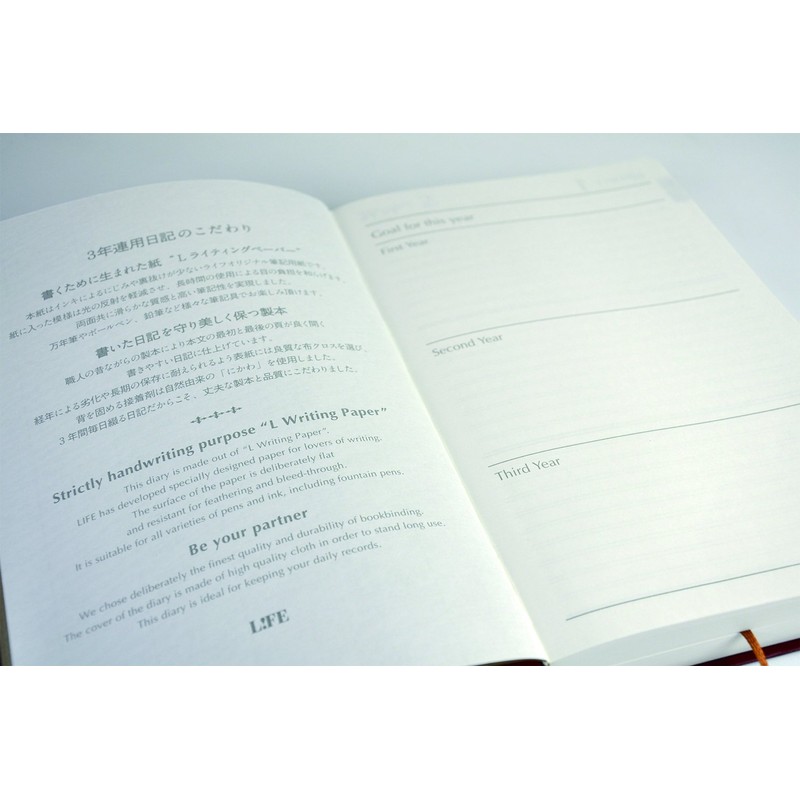 3年連用日記のこだわり
書くために生まれた紙 “L ライティングペーパー”
本紙はインキによるにじみや裏抜けが少ないライフオリジナル筆記用紙です。
紙に入った模様は光の反射を軽減させ、長時間の使用による目の負担を和らげます。
両面共に滑らかな質感と高い筆記性を実現しました。
万年筆やボールペン、鉛筆など様々な筆記具でお楽しみ頂けます。
書いた日記を守り美しく保つ製本
職人の昔ながらの製本により本文の最初と最後の頁が良く開く
書きやすい日記に仕上げています。
経年による劣化や長期の保存に耐えられるよう表紙には良質な布クロスを選び、
背を固める接着剤は自然由来の「にかわ」を使用しました。
3年間毎日綴る日記だからこそ、丈夫な製本と品質にこだわりました。
Strictly handwriting purpose “L Writing Paper”
This diary is made out of “L Writing Paper”.
LIFE has developed specially designed paper for lovers of writing.
The surface of the paper is deliberately flat
and resistant for feathering and bleed-through.
It is suitable for all varieties of pens and ink, including fountain pens.
Be your partner
We chose deliberately the finest quality and durability of bookbinding.
The cover of the diary is made of high quality cloth in order to stand long use.
This diary is ideal for keeping your daily records.
L!FE
Goal for this year
First Year
Second Year
Third Year